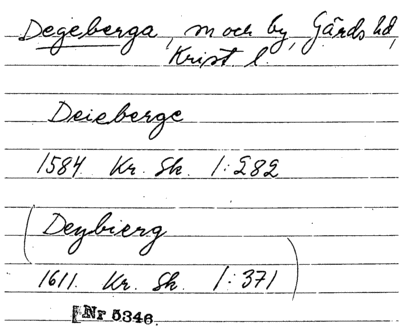 Degeberga, m och by, Gärds hd,
Krist l.
Deieberge
1584 Kr. Sk. 1:282
(Deybierg
1611. Kr. Sk. 1:371)
[Nr 5346.